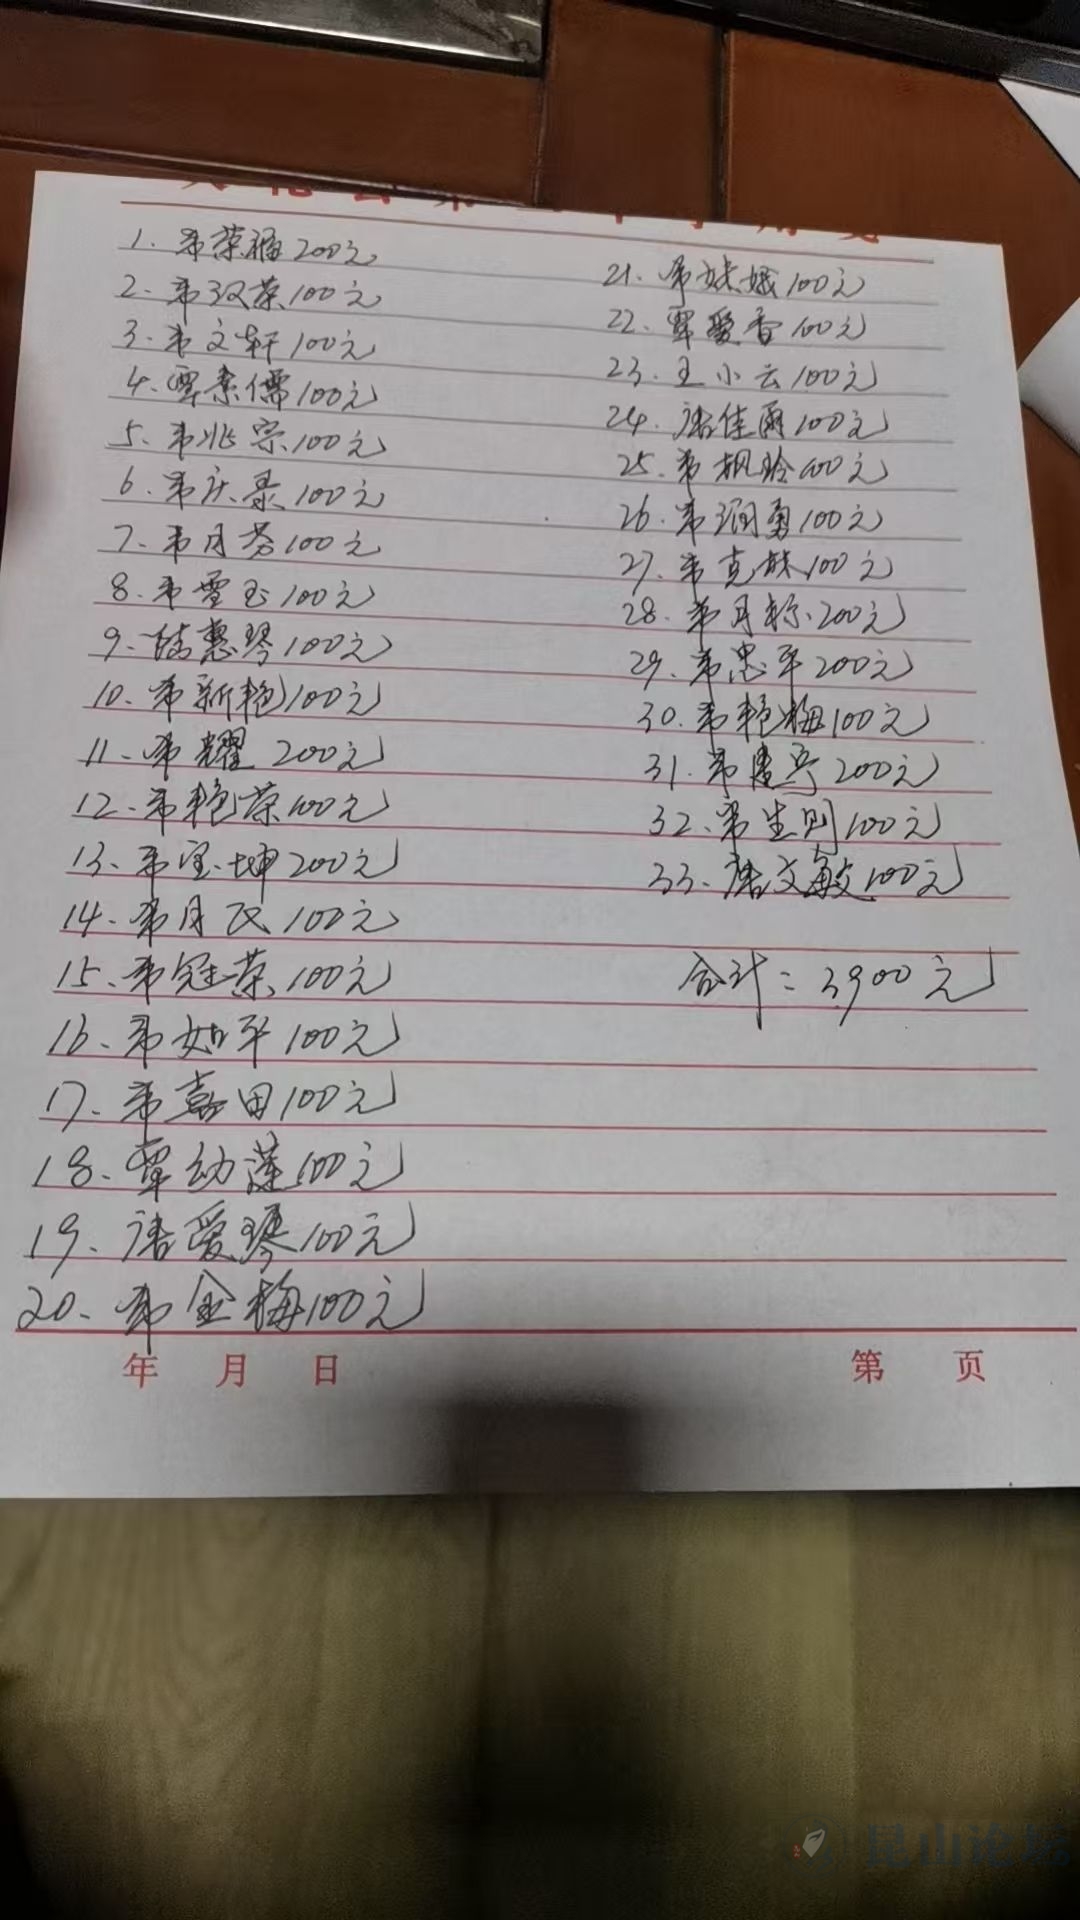 1. 韦荣福 200元
2. 韦汉荣 100元
3. 韦文轩 100元
4. 覃素儒 100元
5. 韦兆宗 100元
6. 韦庆 100元
7. 韦月芬 100元
8. 韦雪玉 100元
9. 陆惠琴 100元
10. 韦新艳 100元
11. 韦耀 200元
12. 韦艳荣 100元
13. 韦宝坤 200元
14. 韦月民 100元
15. 韦冠荣 100元
16. 韦如平 100元
17. 韦嘉田 100元
18. 覃幼莲 100元
19. 唐爱琴 100元
20. 韦金梅 100元
21. 韦妹娥 100元
22. 覃爱香 100元
23. 王小云 100元
24. 唐佳雨 100元
25. 韦枫玲 100元
26. 韦润勇 100元
27. 韦克妹 100元
28. 韦月 200元
29. 韦忠平 200元
30. 韦艳梅 100元
31. 韦 200元
32. 韦生则 100元
33. 唐文敏 100元
合计: 3900元
年 月 日
第 页
昆山论坛